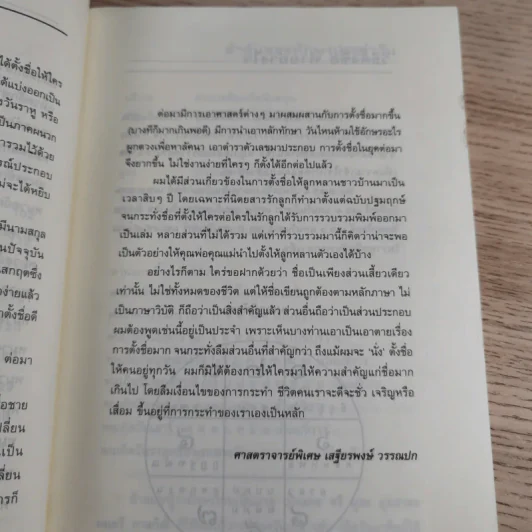 ได้ตั้งชื่อให้ใคร
ด้แบ่งออกเป็น
งวันราหู หรือ
เป็นภาคผนวก
ารวมไว้ด้วย
รณ์ประกอบ
ม่จะได้หยิบ
มีนามสกุล
นปัจจุบัน
สกฤตซึ่ง
ง่ายแล้ว
าตั้งชื่อดี
ต่อมา
อชาย
ปลี่ยน
เป็น
ปลี่ยน
ารก็
ต่อมามีการเอาศาสตร์ต่างๆ มาผสมผสานกับการตั้งชื่อมากขึ้น
(บางทีก็มากเกินพอดี) มีการนำเอาหลักทักษา วันไหนห้ามใช้อักษรอะไร
ผูกดวงเพื่อหาลัคนา เอาตำราตัวเลขมาประกอบ การตั้งชื่อในยุคต่อมา
จึงยากขึ้น ไม่ใช่งานง่ายที่ใครๆ ก็ตั้งได้อีกต่อไปแล้ว
ผมได้มีส่วนเกี่ยวข้องในการตั้งชื่อให้ลูกหลานชาวบ้านมาเป็น
เวลาสิบๆ ปี โดยเฉพาะที่นิตยสารรักลูกก็ทำมาตั้งแต่ฉบับปฐมฤกษ์
จนกระทั่งชื่อที่ตั้งให้ใครต่อใครในรักลูกได้รับการรวบรวมพิมพ์ออกมา
เป็นเล่ม หลายส่วนที่ไม่ได้รวม แต่เท่าที่รวบรวมมานี้ก็คิดว่าน่าจะพอ
เป็นตัวอย่างให้คุณพ่อคุณแม่นำไปตั้งให้ลูกหลานตัวเองได้บ้าง
อย่างไรก็ตาม ใคร่ขอฝากด้วยว่า ชื่อเป็นเพียงส่วนเสี้ยวเดียว
เท่านั้น ไม่ใช่ทั้งหมดของชีวิต แต่ให้ชื่อเขียนถูกต้องตามหลักภาษา ไม่
เป็นภาษาวิบัติ ก็ถือว่าเป็นสิ่งสำคัญแล้ว ส่วนอื่นถือว่าเป็นส่วนประกอบ
ผมต้องพูดเช่นนี้อยู่เป็นประจำ เพราะเห็นบางท่านเอาเป็นเอาตายเรื่อง
การตั้งชื่อมาก จนกระทั่งลืมส่วนอื่นที่สำคัญกว่า ถึงแม้ผมจะ 'นั่ง' ตั้งชื่อ
ให้คนอยู่ทุกวัน ผมก็มิได้ต้องการให้ใครมาให้ความสำคัญแก่ชื่อมาก
เกินไป โดยลืมเงื่อนไขของการกระทำ ชีวิตคนเราจะดีจะชั่ว เจริญหรือ
เสื่อม ขึ้นอยู่ที่การกระทำของเราเองเป็นหลัก
ศาสตราจารย์พิเศษ เสฐียรพงษ์ วรรณปก